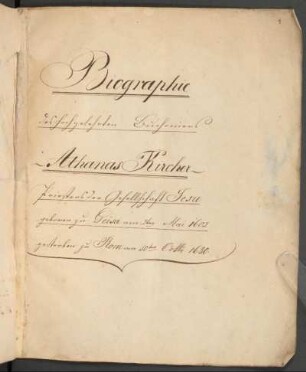 Biographie
des hochgelehrten Buchoniers
Athanas Kircher
Priesters der Gesellschaft Jesu
geboren zu Geisa am 2ten Mai 1602
gestorben zu Rom am Octbr 1680.